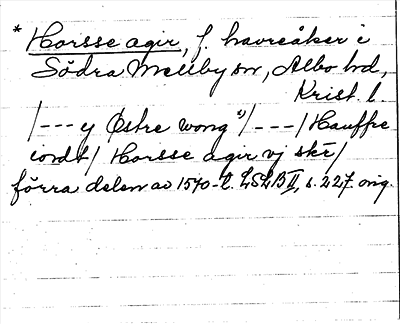 * Horsse agir, f. havreåker i
Södra Mellby sn, Albo hd,
Krist. l.
/--- y Østre wong a)/ ---/ Hauffre
iordt/ Horsse agir vj skr/
förra delen av 1570-t. LSLB II, s. 227 orig.